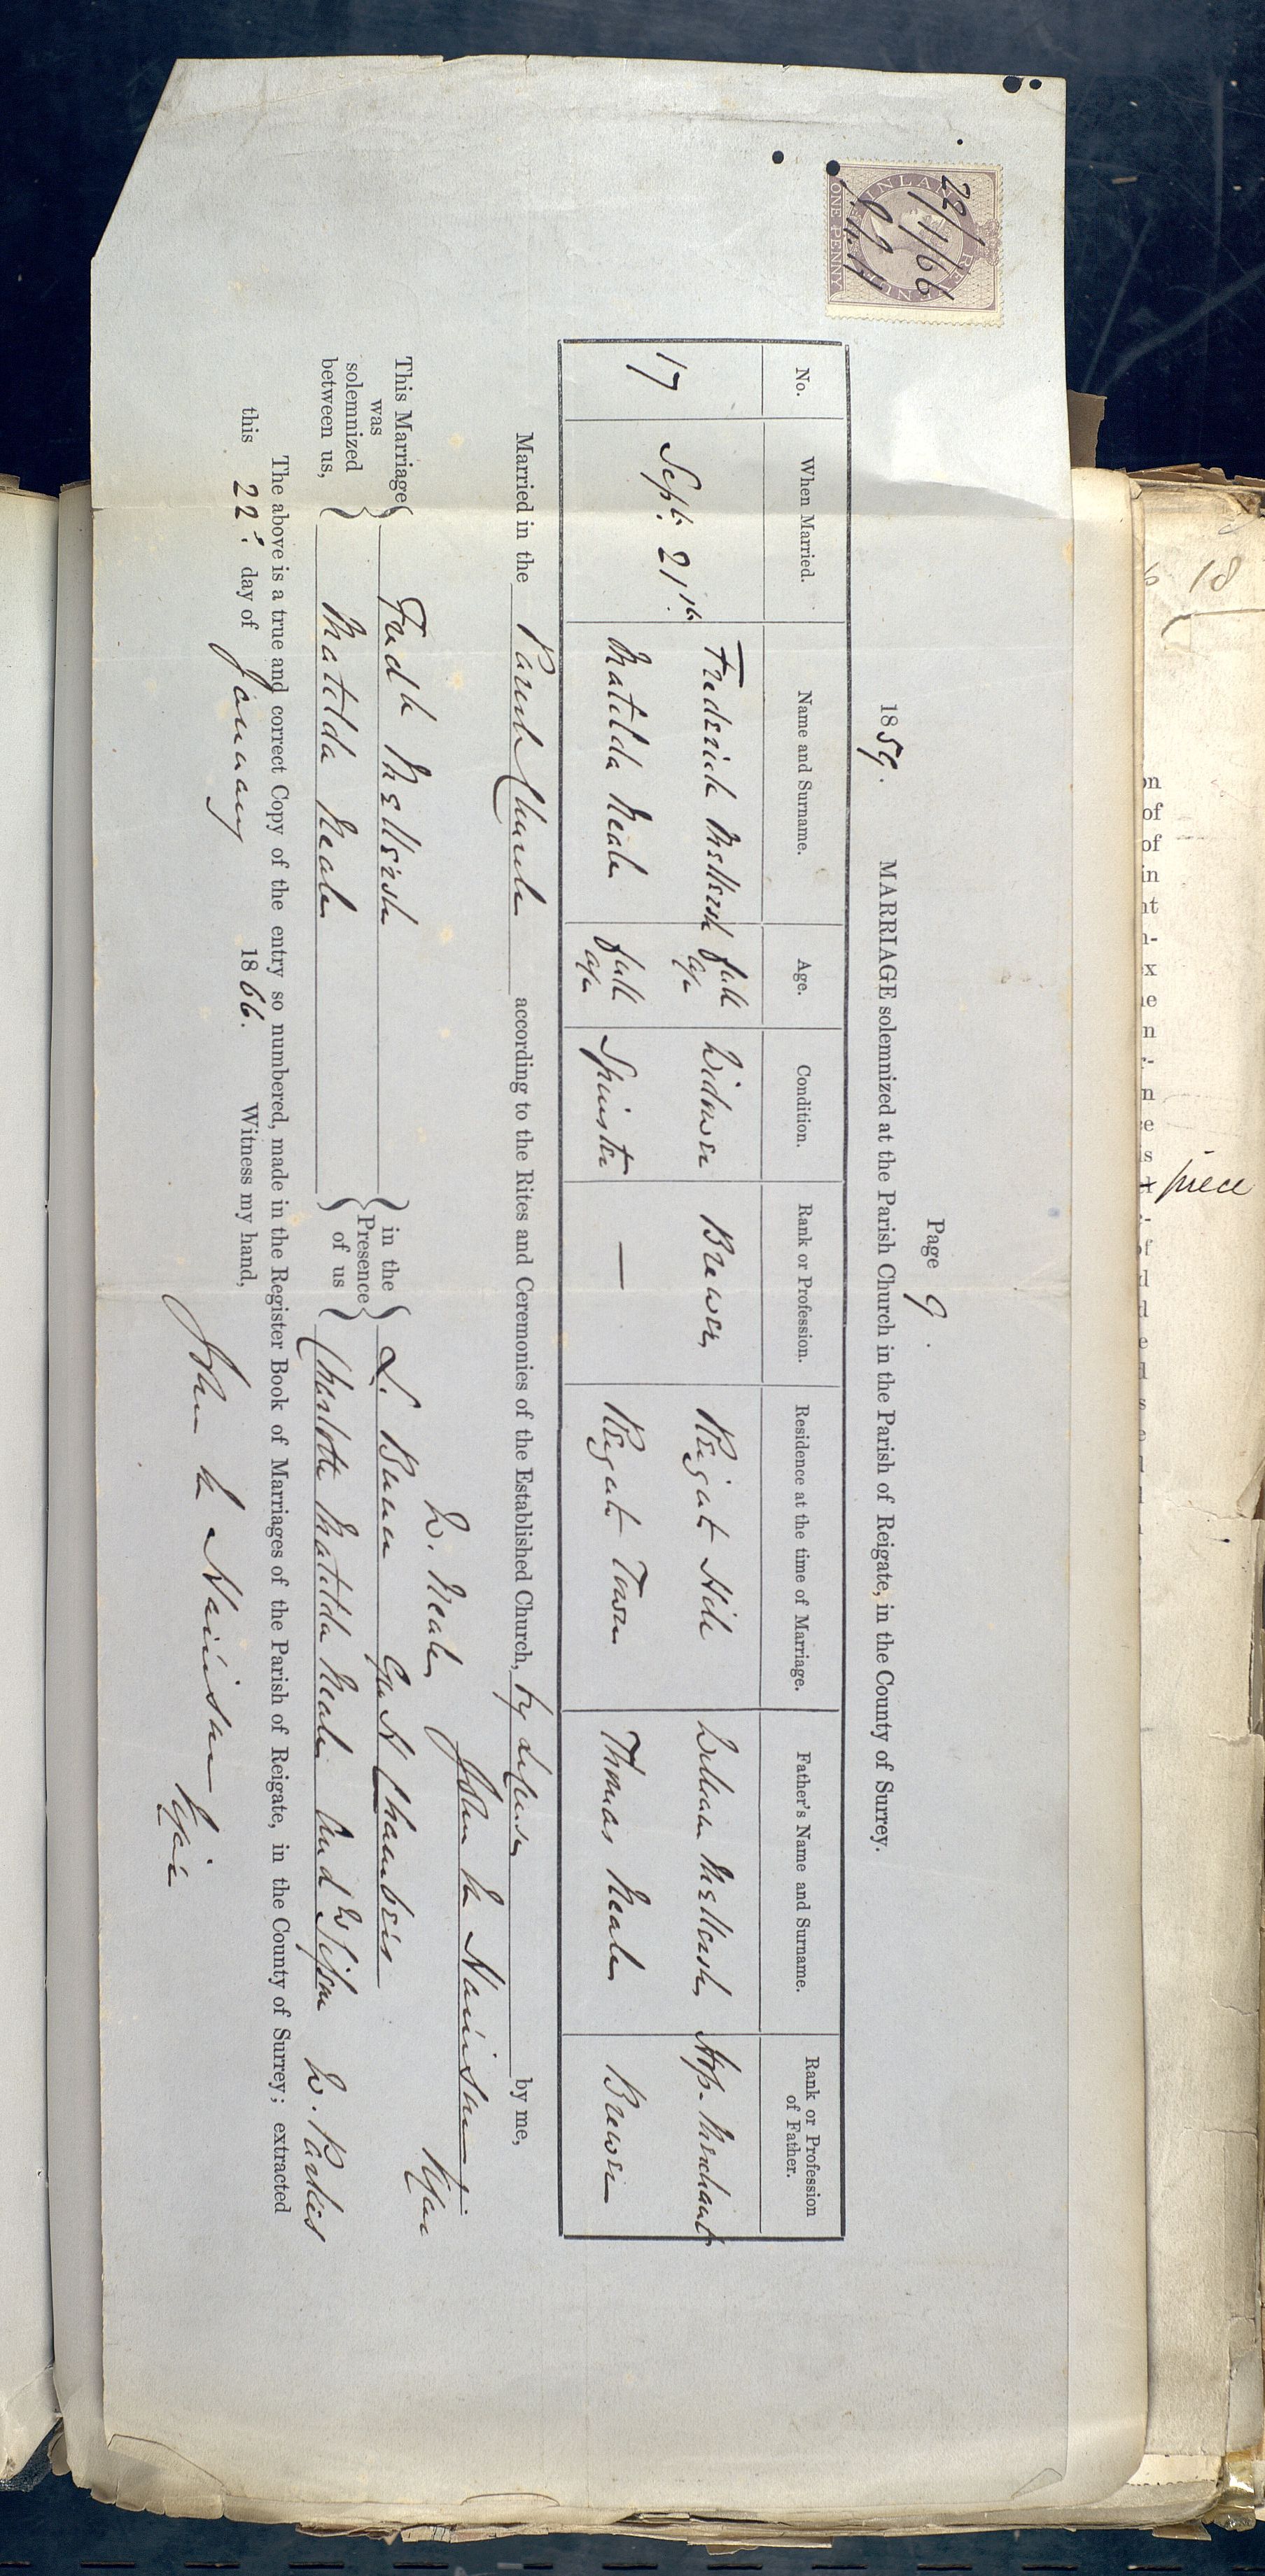 22/1/66
INLAND REVENUE
ONE PENNY
Page 9.
1859. MARRIAGE solemnized at the Parish Church in the Parish of Reigate, in the County of Surrey.
No. When Married. Name and Surname. Age. Condition. Rank or Profession. Residence at the time of Marriage. Father's Name and Surname. Rank or Profession of Father.
17 Sept. 21st. Frederick Mellersh full age Widower Brewer Reigate Hill William Mellersh Hop-Merchant
Matilda Neale full age Spinster — Reigate Town Thomas Neale Brewer
Married in the Parish Church according to the Rites and Ceremonies of the Established Church, by License by me,
John N Harrison
This Marriage was solemnized between us,
Fredk Mellersh
Matilda Neale
in the Presence of us
W. Neale
L. Bunn Chambers
Charlotte Matilda Neale W. Parkes
The above is a true and correct Copy of the entry so numbered, made in the Register Book of Marriages of the Parish of Reigate, in the County of Surrey; extracted
this 22d. day of January 1866. Witness my hand,
John N Harrison
18
piece